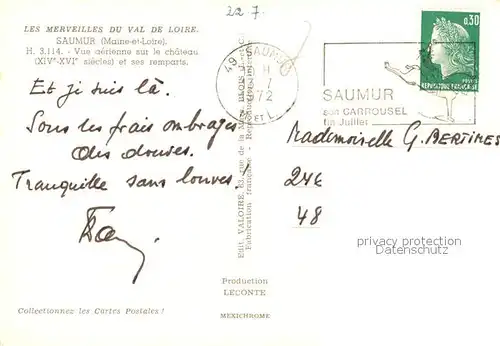 22 7.
LES MERVEILLES DU VAL DE LOIRE.
SAUMUR (Maine-et-Loire).
H. 3.114. - Vue aérienne sur le château
(XIVe-XVIe siècles) et ses remparts.
Et je suis là.
Sous les frais ombrages
des douves.
Tranquille sans louves!
Collectionnez les Cartes Postales!
49 SAUMUR
H
7
1972
ET L
Edit. VALOIRE,
Fabrication française - 
Production
LECONTE
MEXICHROME
0,30
POSTES
REPUBLIQUE FRANÇAISE
SAUMUR
son CARROUSEL
fin Juillet
Mademoiselle G. BERTINES
246
48
privacy protection
Datenschutz